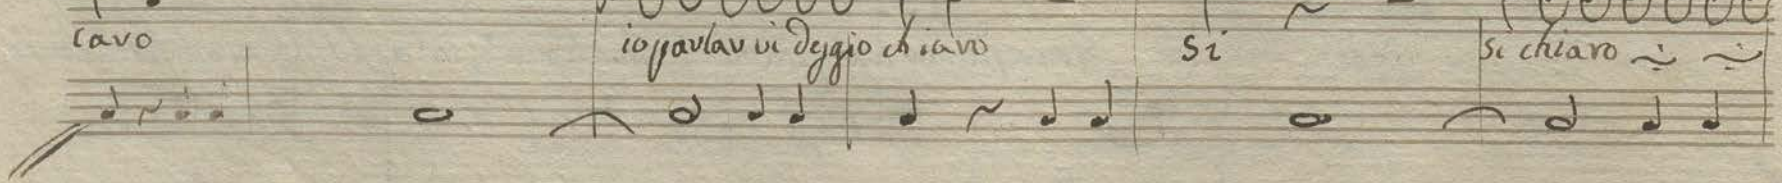 caro io parlar vi deggio chiaro si si chiaro